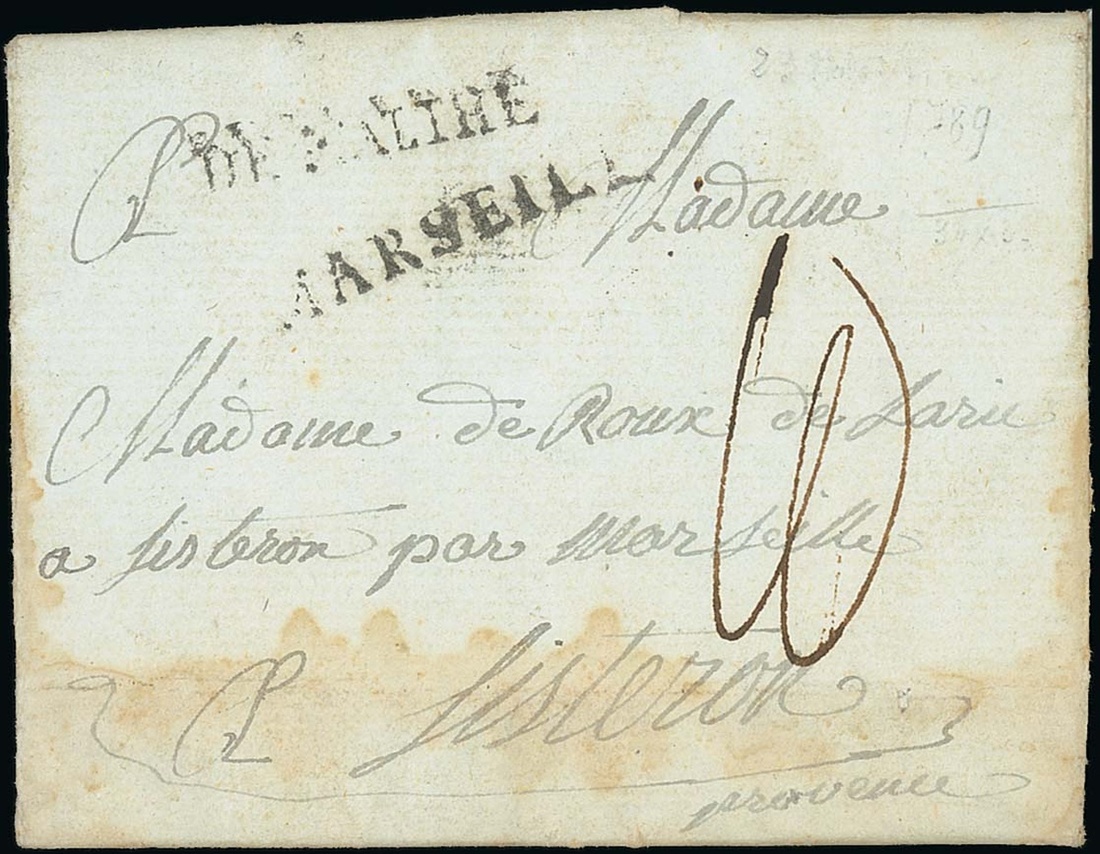 DE MALTHE
MARSEILL
A Madame
Madame de Roux de Laric
a sisteron par marseille
A sisteron
provence
10
789